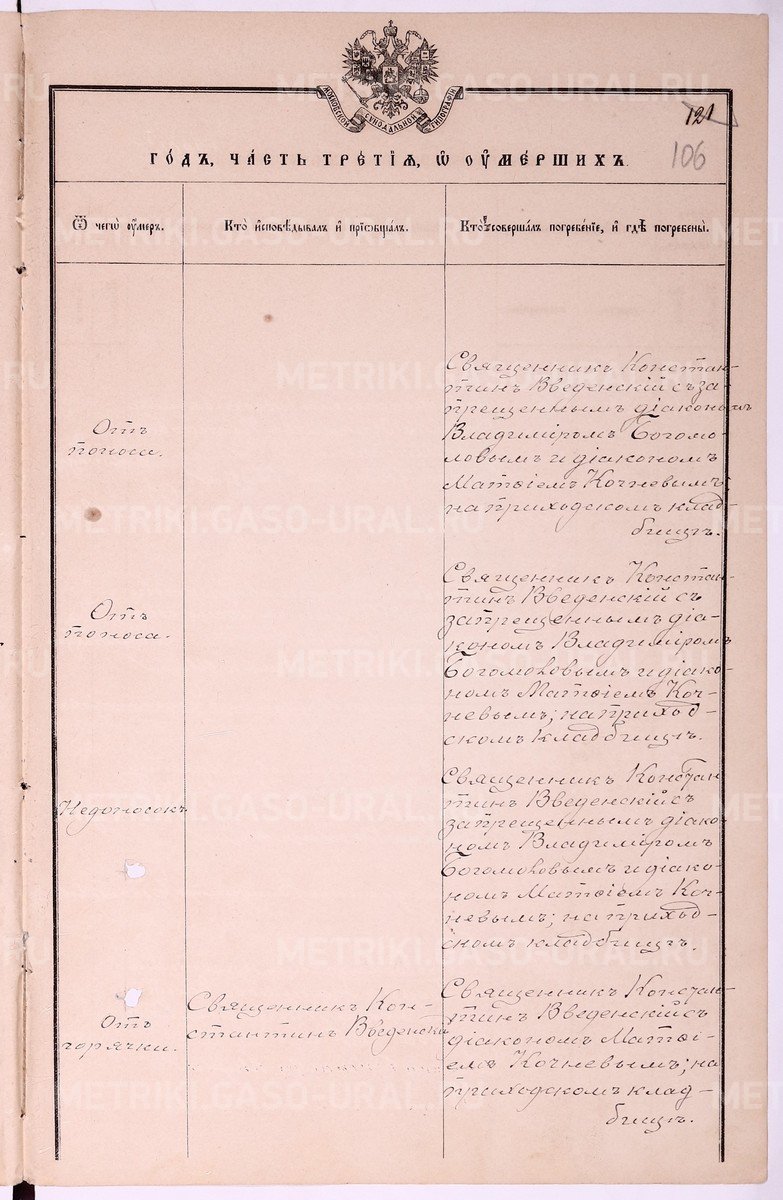 МОСКОВСКОЙ СѴНОДАЛЬНОЙ ТИПОГРАФІИ
121
106
ГОДЪ, ЧАСТЬ ТРЕТІЯ, Ѡ ОУМЕРШИХЪ.
Ѿ чегѡ оумеръ.
Кто исповѣдывалъ и пріобщалъ.
Кто совершалъ погребеніе, и гдѣ погребены.
Отъ
поноса.
Священникъ Констан-
тинъ Введенскій съ за-
прещеннымъ діакономъ
Владиміромъ Богомо-
ловымъ и діакономъ
Матѳіемъ Кочневымъ
на приходскомъ клад-
бищѣ.
Отъ
поноса.
Священникъ Констан-
тинъ Введенскій съ
запрещеннымъ діа-
кономъ Владиміромъ
Богомоловымъ и діако-
номъ Матѳіемъ Коч-
невымъ; на приход-
скомъ кладбищѣ.
Недоносокъ
Священникъ Констан
тинъ Введенскій съ
запрещеннымъ діако
номъ Владиміромъ
Богомоловымъ и діако-
номъ Матѳіемъ Коч-
невымъ; на приход-
скомъ кладбищѣ.
Отъ
горячки.
Священникъ Кон-
стантинъ Введенскій
Священникъ Констан-
тинъ Введенскій съ
діакономъ Матѳі-
емъ Кочневымъ; на
приходскомъ клад-
бищѣ.
METRIKI.GASO-URAL.RU